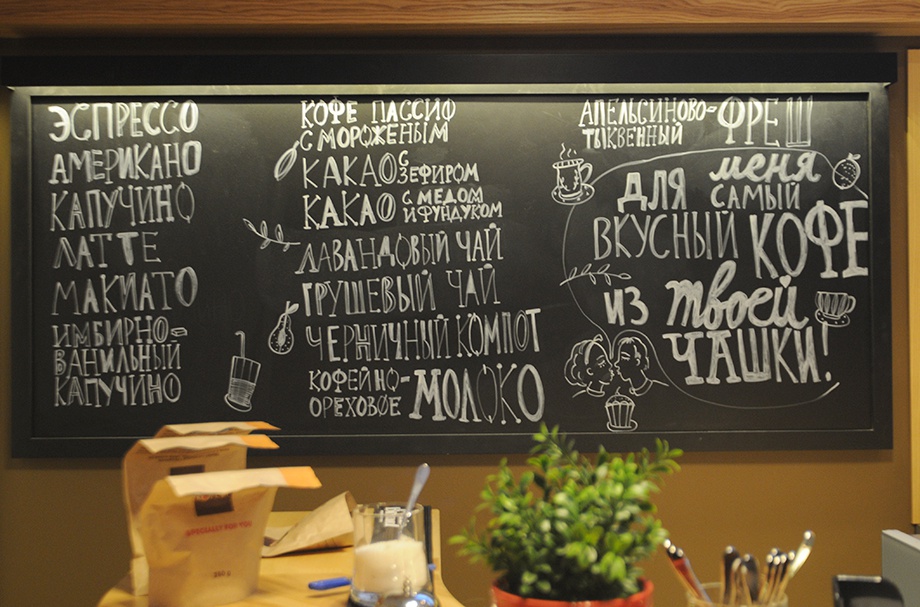 ЭСПРЕССО
АМЕРИКАНО
КАПУЧИНО
ЛАТТЕ
МАКИАТО
ИМБИРНО-
ВАНИЛЬНЫЙ
КАПУЧИНО
КОФЕ ПАССИФ
С МОРОЖЕНЫМ
КАКАО С ЗЕФИРОМ
КАКАО С МЕДОМ И ФУНДУКОМ
ЛАВАНДОВЫЙ ЧАЙ
ГРУШЕВЫЙ ЧАЙ
ЧЕРНИЧНЫЙ КОМПОТ
КОФЕЙНО-
ОРЕХОВОЕ МОЛОКО
АПЕЛЬСИНОВО-
ТЫКВЕННЫЙ ФРЕШ
ДЛЯ меня САМЫЙ
ВКУСНЫЙ КОФЕ
ИЗ твоей
ЧАШКИ!